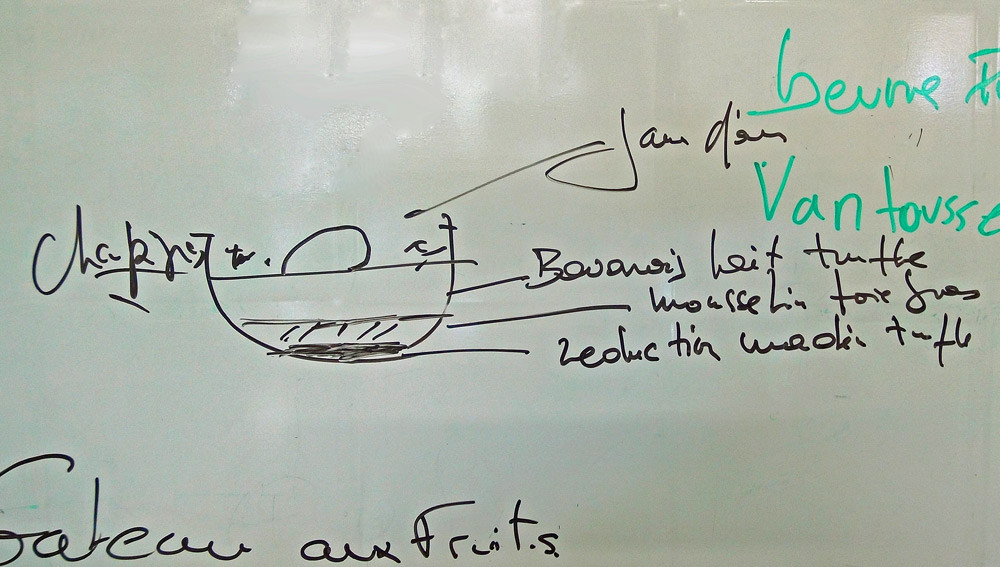 beurre
Jam
Van tousse
Bavarois lait truffe
mousselin foie gras
reduction madin truffe
Gateau aux Fruits